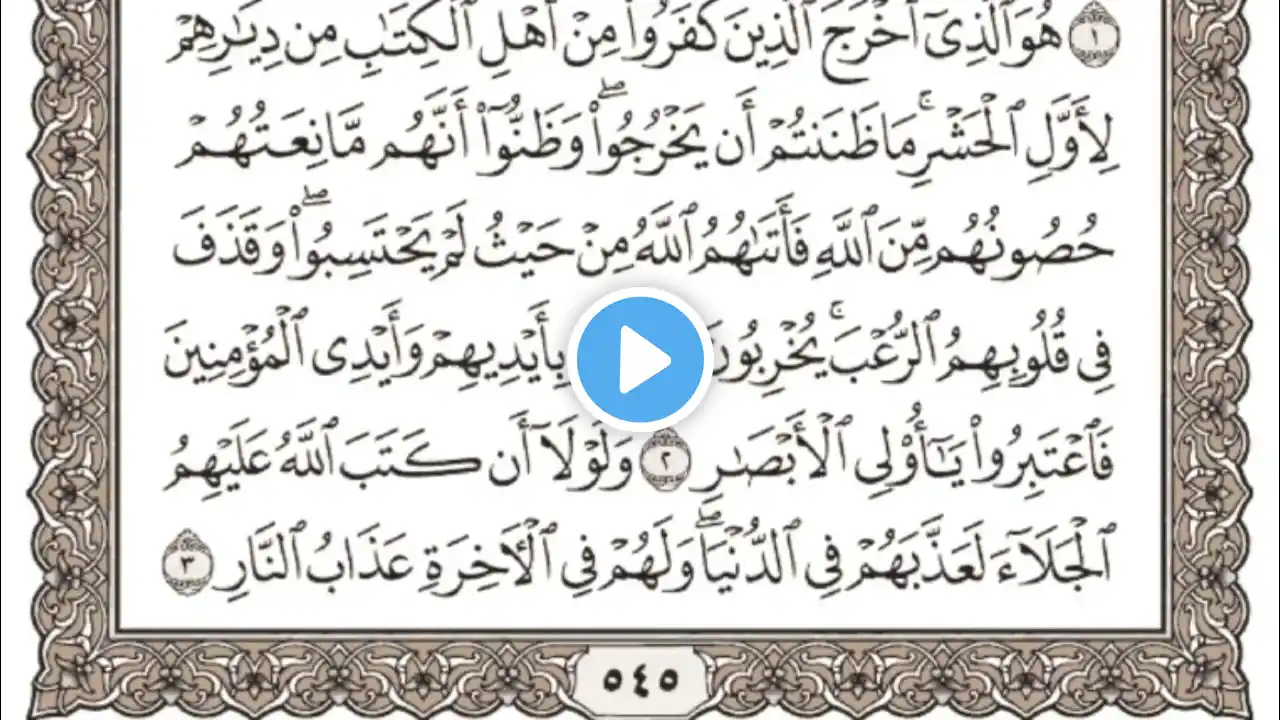 ١ هُوَ ٱلَّذِىٓ أَخْرَجَ ٱلَّذِينَ كَفَرُوا۟ مِنْ أَهْلِ ٱلْكِتَٰبِ مِن دِيَٰرِهِمْ
لِأَوَّلِ ٱلْحَشْرِ ۚ مَا ظَنَنتُمْ أَن يَخْرُجُوا۟ ۖ وَظَنُّوٓا۟ أَنَّهُم مَّانِعَتُهُمْ
حُصُونُهُم مِّنَ ٱللَّهِ فَأَتَىٰهُمُ ٱللَّهُ مِنْ حَيْثُ لَمْ يَحْتَسِبُوا۟ ۖ وَقَذَفَ
فِى قُلُوبِهِمُ ٱلرُّعْبَ ۚ يُخْرِبُونَ بِأَيْدِيهِمْ وَأَيْدِى ٱلْمُؤْمِنِينَ
فَٱعْتَبِرُوا۟ يَٰٓأُو۟لِى ٱلْأَبْصَٰرِ ٢ وَلَوْلَآ أَن كَتَبَ ٱللَّهُ عَلَيْهِمُ
ٱلْجَلَآءَ لَعَذَّبَهُمْ فِى ٱلدُّنْيَا ۖ وَلَهُمْ فِى ٱلْـَٔاخِرَةِ عَذَابُ ٱلنَّارِ ٣
٥٤٥